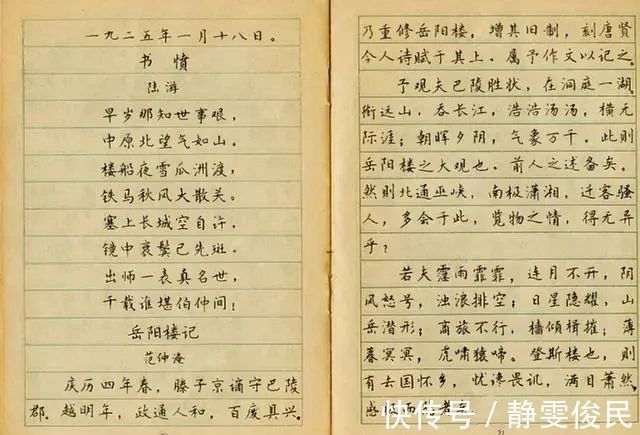 一九二五年一月十八日。
书愤
陆游
早岁那知世事艰，
中原北望气如山。
楼船夜雪瓜洲渡，
铁马秋风大散关。
塞上长城空自许，
镜中衰鬓已先斑。
出师一表真名世，
千载谁堪伯仲间！
岳阳楼记
范仲淹
庆历四年春，滕子京谪守巴陵
郡。越明年，政通人和，百废具兴。
乃重修岳阳楼，增其旧制，刻唐贤
今人诗赋于其上。属予作文以记之。
予观夫巴陵胜状，在洞庭一湖。
衔远山，吞长江，浩浩汤汤，横无
际涯；朝晖夕阴，气象万千。此则
岳阳楼之大观也。前人之述备矣。
然则北通巫峡，南极潇湘，迁客骚
人，多会于此，览物之情，得无异
乎？
若夫霪雨霏霏，连月不开，阴
风怒号，浊浪排空；日星隐耀，山
岳潜形；商旅不行，樯倾楫摧；薄
暮冥冥，虎啸猿啼。登斯楼也，则
有去国怀乡，忧谗畏讥，满目萧然，
感极而
快传号／静雯俊民
21